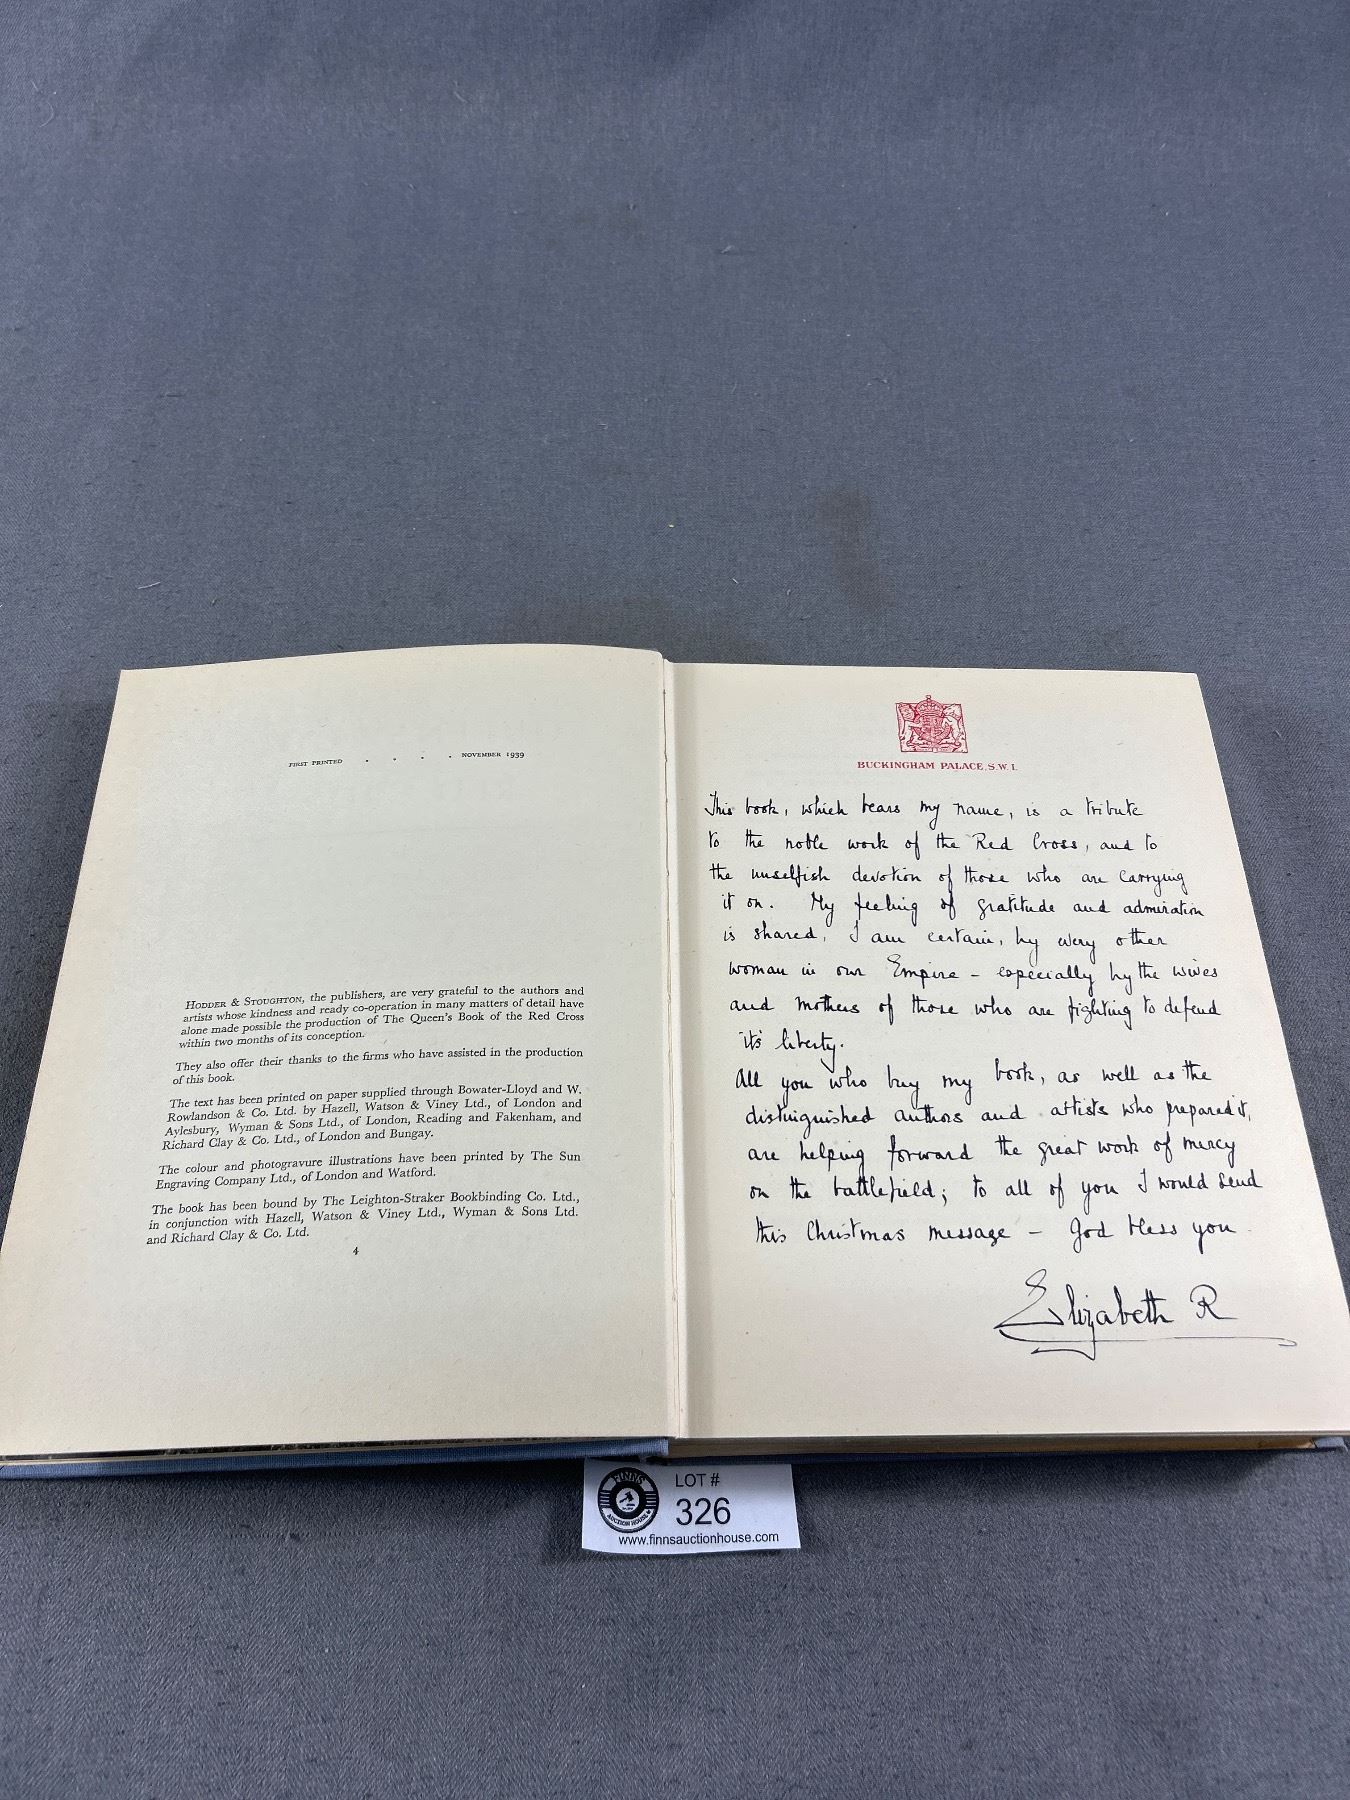 FIRST PRINTED . . . . NOVEMBER 1939
HODDER & STOUGHTON, the publishers, are very grateful to the authors and
artists whose kindness and ready co-operation in many matters of detail have
alone made possible the production of The Queen's Book of the Red Cross
within two months of its conception.
They also offer their thanks to the firms who have assisted in the production
of this book.
The text has been printed on paper supplied through Bowater-Lloyd and W.
Rowlandson & Co. Ltd. by Hazell, Watson & Viney Ltd., of London and
Aylesbury, Wyman & Sons Ltd., of London, Reading and Fakenham, and
Richard Clay & Co. Ltd., of London and Bungay.
The colour and photogravure illustrations have been printed by The Sun
Engraving Company Ltd., of London and Watford.
The book has been bound by The Leighton-Straker Bookbinding Co. Ltd.,
in conjunction with Hazell, Watson & Viney Ltd., Wyman & Sons Ltd.
and Richard Clay & Co. Ltd.
4
BUCKINGHAM PALACE, S.W.1.
This book, which bears my name, is a tribute
to the noble work of the Red Cross, and to
the unselfish devotion of those who are carrying
it on. My feeling of gratitude and admiration
is shared, I am certain, by every other
woman in our Empire – especially by the wives
and mothers of those who are fighting to defend
it's liberty.
All you who buy my book, as well as the
distinguished authors and artists who prepared it,
are helping forward the great work of mercy
on the battlefield; to all of you I would send
this Christmas message – God bless you.
Elizabeth R
FINNS
AUCTION HOUSE
LOT #
326
www.finnsauctionhouse.com